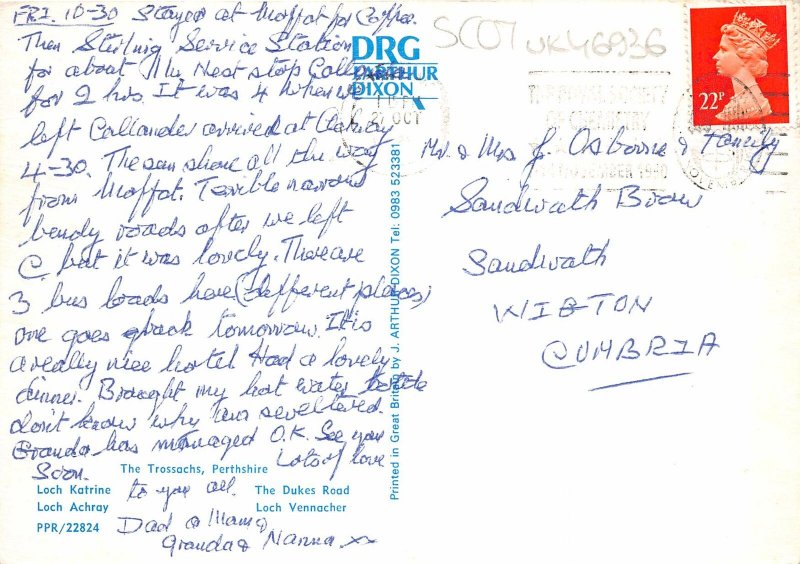 FRI. 10-30 Stayed at Moffat for Coffee.
Then Stirling Service Station
for about 1 Hr. Next stop Callander
for 2 hrs. It was 4 when we
left Callander arrived at
4-30. The sun shone all the way
from Moffat. Terrible narrow
bendy roads after we left
C but it was lovely. There are
3 bus loads here (different places)
one goes back tomorrow. It is
a really nice hotel Had a lovely
dinner. Brought my hot water bottle
don't know why am sweltered.
Granda has managed O.K. See you
Soon. Lots of love
to you all.
Dad & Mam &
Granda & Nanna xx
The Trossachs, Perthshire
Loch Katrine The Dukes Road
Loch Achray Loch Vennacher
PPR/22824
DRG
J.ARTHUR
DIXON
Printed in Great Britain by J. ARTHUR DIXON Tel: 0983 523381
SCOT UK46936
22P
27 OCT
THE ROYAL SOCIETY
OF CHEMISTRY
1990
Mr. & Mrs J. Osborne & Family
Sandwath Brow
Sandwath
WIGTON
CUMBRIA